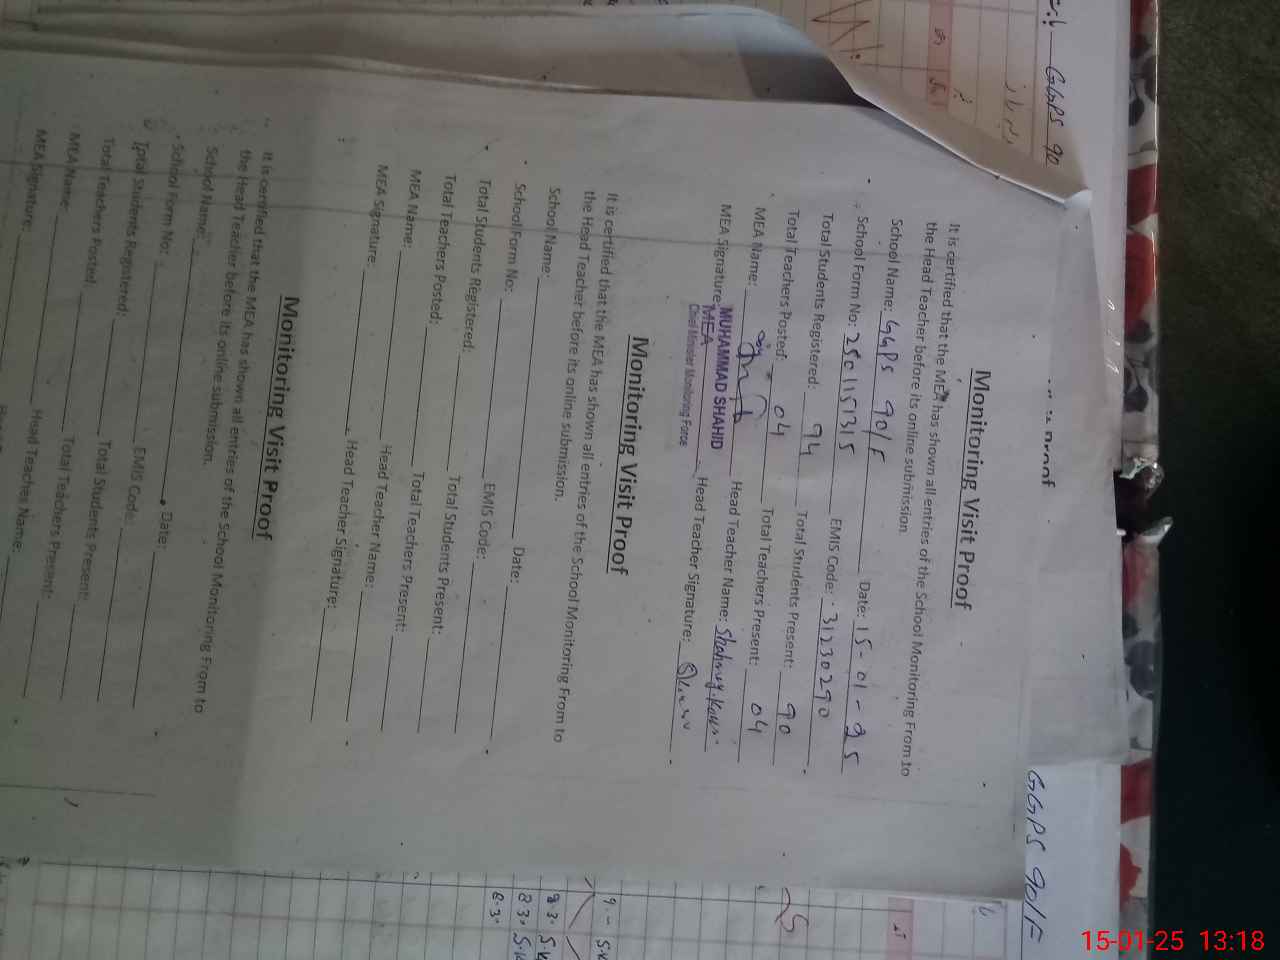 GGPS 90
Proof
GGPS 90/F
Monitoring Visit Proof
It is certified that the MEA has shown all entries of the School Monitoring From to
the Head Teacher before its online submission.
School Name: GGPS 90/F Date: 15-01-25
School Form No: 2501151315 EMIS Code: 31230290
Total Students Registered: 94 Total Students Present: 90
Total Teachers Posted: 04 Total Teachers Present: 04
MEA Name: Head Teacher Name: Shahnaz
MUHAMMAD SHAHID
MEA Signature: Head Teacher Signature:
MEA
Chief Minister Monitoring Force
Monitoring Visit Proof
It is certified that the MEA has shown all entries of the School Monitoring From to
the Head Teacher before its online submission.
School Name: Date:
School Form No: EMIS Code:
Total Students Registered: Total Students Present:
Total Teachers Posted: Total Teachers Present:
MEA Name: Head Teacher Name:
MEA Signature: Head Teacher Signature:
Monitoring Visit Proof
It is certified that the MEA has shown all entries of the School Monitoring From to
the Head Teacher before its online submission.
School Name: Date:
School Form No: EMIS Code:
Total Students Registered: Total Students Present:
Total Teachers Posted: Total Teachers Present:
MEA Name: Head Teaches Name:
MEA Signature:
15-01-25 13:18